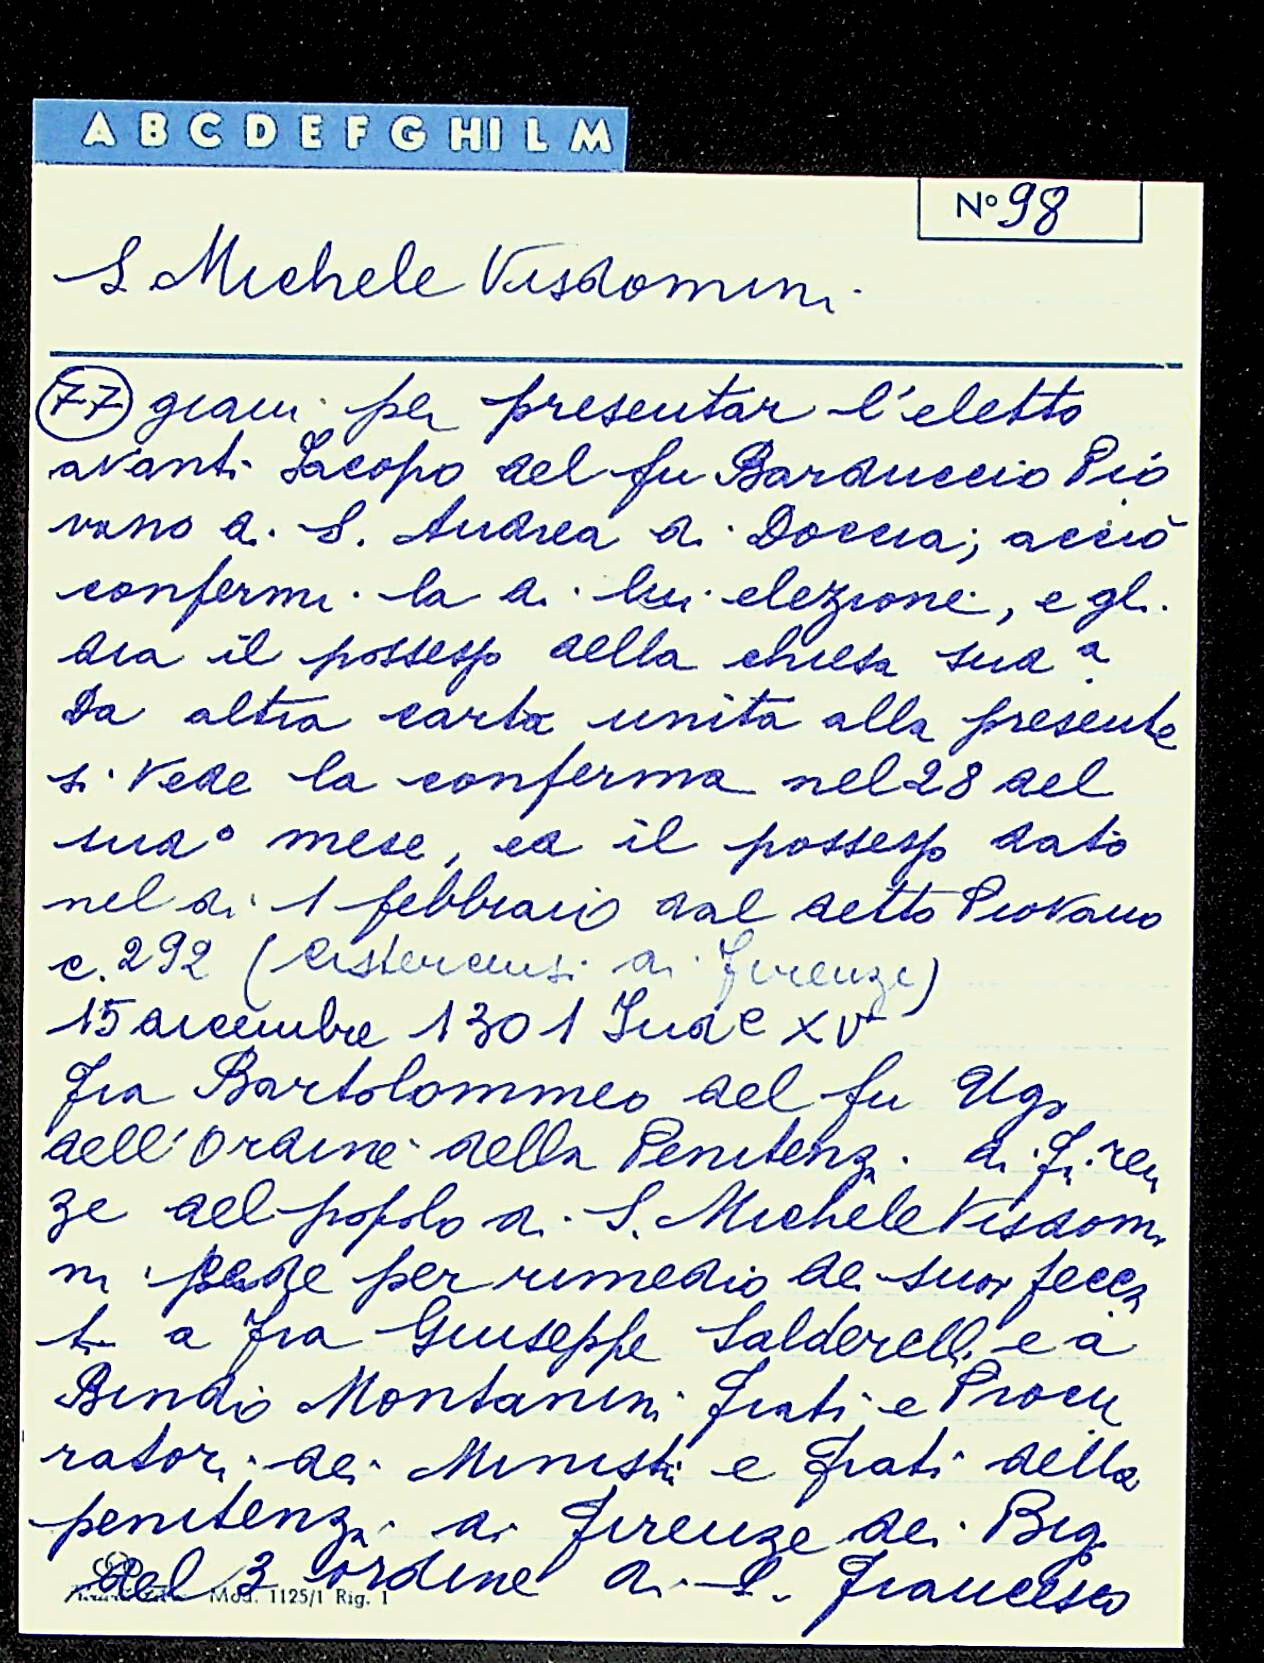 A B C D E F G HI L M
N° 98
S. Michele Visdomini
77 giani per presentar l'eletto
avanti Iacopo del fu Barduccio Pio
vano di S. Andrea di Doccia; acciò
confermi la di lui elezione, e gli
dia il possesso della chiesa sud a
Da altra carta unita alla presente
si vede la conferma nel 28 del
sud° mese, ed il possesso dato
nel di 1 febbraio dal detto Piovano
c. 292 (Cistercensi di Firenze)
15 dicembre 1301 Ind e XV
Fra Bartolommeo del fu Ugo
dell'Ordine della Penitenza di Firen
ze del popolo di S. Michele Visdomi
ni per rimedio de suoi pecca
ti a Fra Giuseppe Salderelli e a
Bindo Montanini frati e Procu
ratori dei Ministri e frati della
penitenza di Firenze dei Big.
del 3 ordine di S. Francesco
Mod. 1125/1 Rig. 1